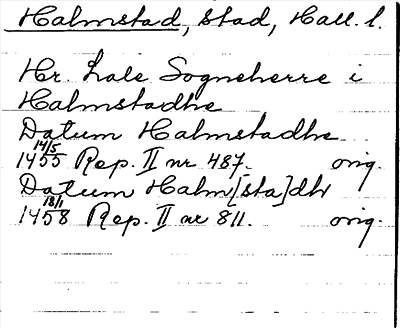 Halmstad, stad, Hall. l.
Hr. Lale Sogneherre i
Halmstadhe
Datum Halmstadhe
1455 14/5 Rep. II nr 487. orig.
Datum Halm[sta]dh
1458 18/1 Rep. II nr 811. orig.